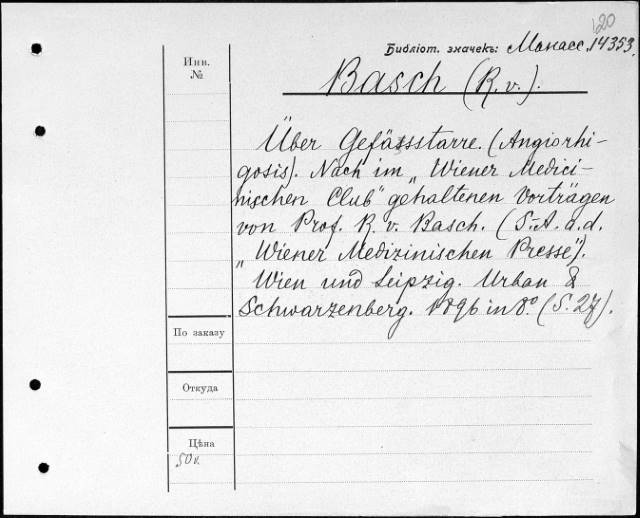 120
Библіот. значекъ: Манасс. 14353.
Инв.
№
Basch (R. v.).
Über Gefässstarre. (Angiorhi-
gosis). Nach im „Wiener Medici-
nischen Club" gehaltenen Vorträgen
von Prof. R. v. Basch. (S.-A. a. d.
„Wiener Medizinischen Presse").
Wien und Leipzig. Urban &
Schwarzenberg. 1896 in 8.° (S. 27).
По заказу
Откуда
Цѣна
50 к.